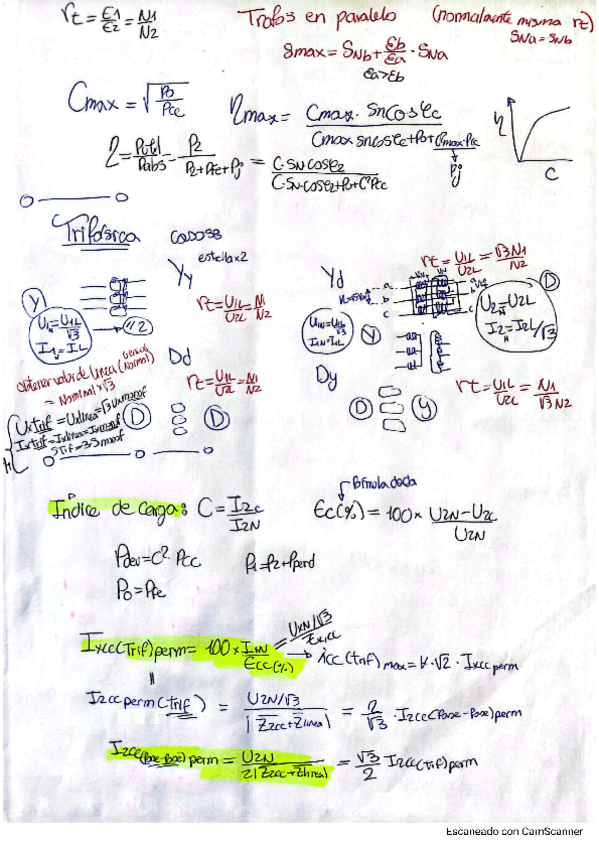 rt = ε1/ε2 = N1/N2
Trafos en paralelo (normalmente misma rt)
SNa = SNb
Smax = SNb + εb/εa · SNa
εa > εb
Cmax = √(Po/Pcc)
ηmax = Cmax · Sn cos φc / (Cmax Sn cos φc + Po + C²max Pcc)
Pj
η = Putil/Pabs = P2/(P2 + Pfe + Pj) = C·SN cos φ2 / (C·SN·cos φ2 + Po + C²Pcc)
η
C
Trifásica
casos
Yy estrella x2
rt = U1L/U2L = N1/N2
Y
U1N = U1L/√3
I1N = I1L
// 2
Yd
rt = U1L/U2L = √3 N1/N2
a
b
c
U1N = U1L/√3
I1N = I1L
Y
D
U2N = U2L
I2N = I2L/√3
Obtener valor de linea (Nominal)
= Nominal x √3
Dd
rt = U1L/U2L = N1/N2
D
D
Uxtrif = Uxlinea = √3 Uxmonof
Ixtrif = Ixlinea = Ixmonof
Strif = 3·Smonof
Dy
D
Y
rt = U1L/U2L = N1/(√3 N2)
Índice de carga: C = I2c/I2N
fórmula dada
εc(%) = 100 x (U2N − U2c)/U2N
Pdev = C² · Pcc
P1 = P2 + Pperd
Po = Pfe
Ixcc(Trif)perm = 100 x IxN/εcc(%) = (UxN/√3)/Zxcc
icc(trif)max = K·√2 · Ixcc perm
I2cc perm(trif) = (U2N/√3)/|Z2cc + Zlinea| = 2/√3 · I2cc(fase-fase)perm
I2cc(fase-fase)perm = U2N/(2|Z2cc + Zlinea|) = √3/2 I2cc(trif)perm
Escaneado con CamScanner